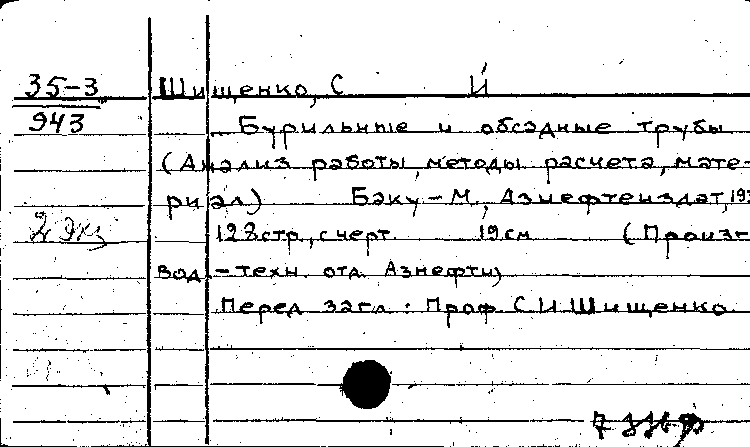 35-3
943
2 экз
Шищенко, С И
Бурильные и обсадные трубы
(Анализ работы, методы расчета, мате-
риал) Баку-М., Азнефтеиздат, 193
128 стр., с черт. 19 см (Произ-
вод.-техн. отд. Азнефти)
Перед загл.: Проф. С И Шищенко